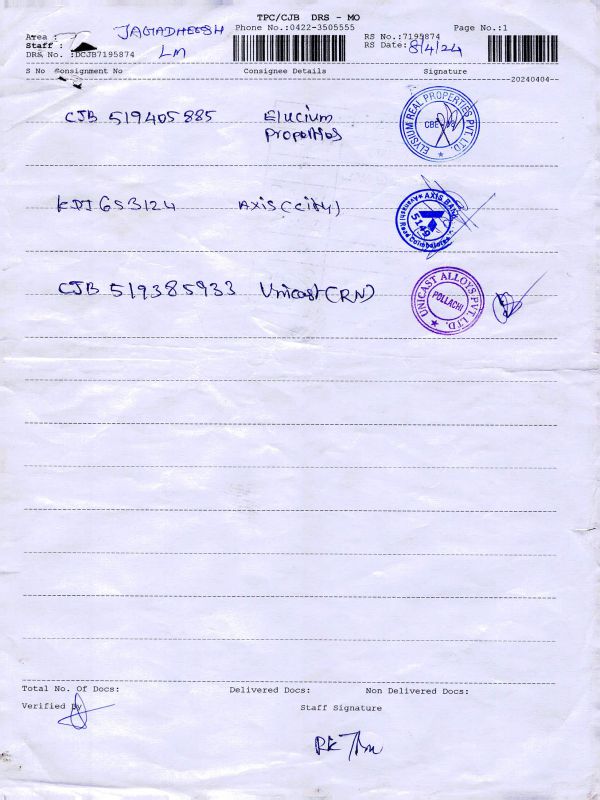 TPC/CJB DRS - MO
Area : JAGADHEESH Phone No.:0422-3505555 RS No.:7195874 Page No.:1
Staff : LM RS Date: 8/4/24
DRS No. :DCJB7195874
S No Consignment No Consignee Details Signature
20240404
CJB 519405885 Elucium
Properties
ELYSIUM REAL PROPERTIES PVT. LTD.
CBE
KDI653124 AXIS (city)
AXIS BANK
5149
Avinashi Road Coimbatore
CJB 519385933 Unicast (RN)
UNICAST ALLOYS PVT. LTD.
POLLACHI
Total No. Of Docs: Delivered Docs: Non Delivered Docs:
Verified By Staff Signature